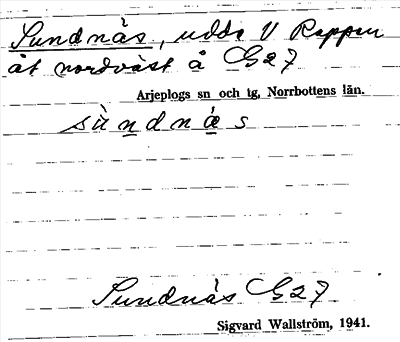 Sundnäs, udde V Rappen
åt nordväst å G27
Arjeplogs sn och tg, Norrbottens län.
sùndnäs
Sundnäs G27
Sigvard Wallström, 1941.